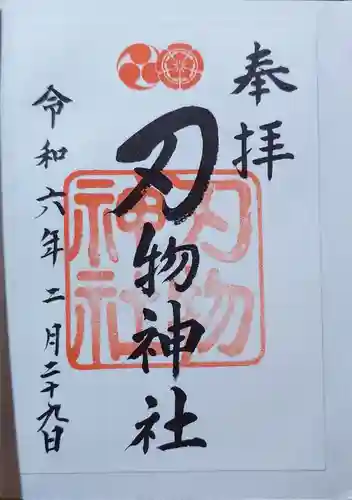 奉拝
刃物神社
令和六年二月二十九日
刃物
神社